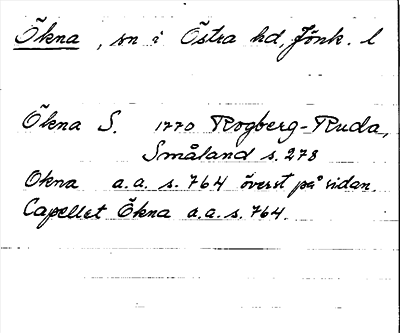 Ökna, sn i Östra hd, Jönk. l
Ökna S. 1770 Rogberg-Ruda,
Småland s. 278
Okna a.a. s. 764 överst på sidan.
Capellet Ökna a.a. s. 764.